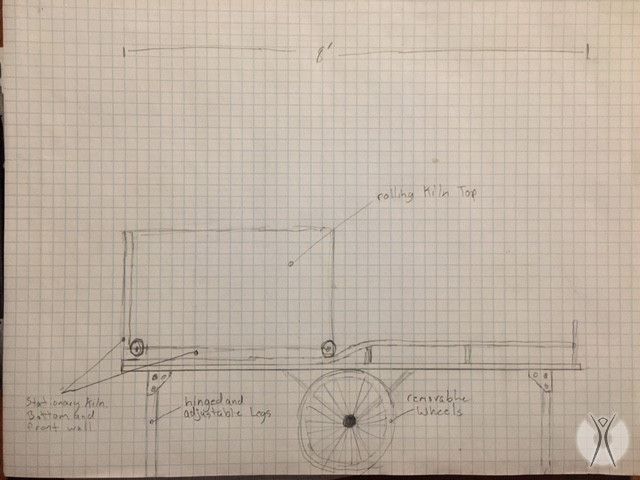 8'
rolling Kiln Top
Stationary Kiln
Bottom and
front wall
hinged and
adjustable Legs
removable
wheels